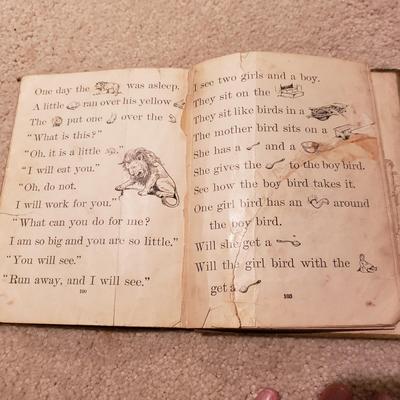 One day the was asleep.
A little ran over his yellow
The put one over the
"What is this?"
"Oh, it is a little ."
"I will eat you."
"Oh, do not.
I will work for you."
"What can you do for me?
I am so big and you are so little."
"You will see."
"Run away, and I will see."
100
I see two girls and a boy.
They sit on the
They sit like birds in a
The mother bird sits on a
She has a and a
She gives the to the boy bird.
See how the boy bird takes it.
One girl bird has an around
the boy bird.
Will she get a
Will the girl bird with the
get a
103